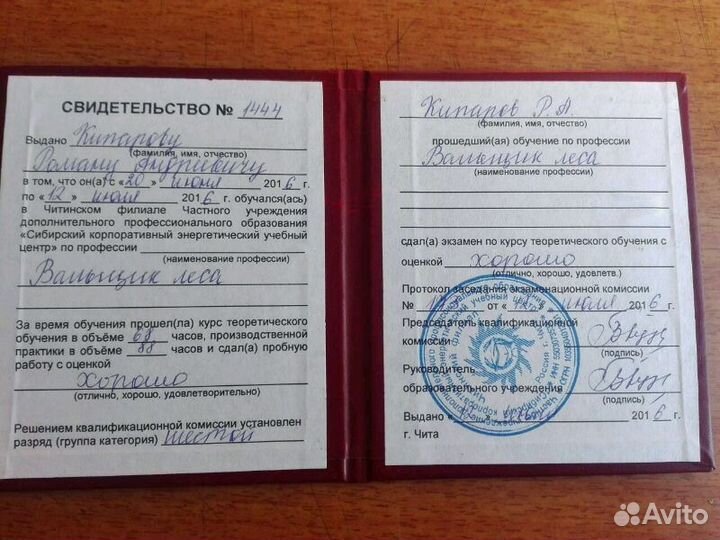 СВИДЕТЕЛЬСТВО № 1444
Выдано Кипарову
(фамилия, имя, отчество)
Роману Андреевичу
в том, что он(а) с «20» июня 2016 г.
по «12» июля 2016 г. обучался(ась)
в Читинском филиале Частного учреждения
дополнительного профессионального образования
«Сибирский корпоративный энергетический учебный
центр» по профессии
(наименование профессии)
Вальщик леса
За время обучения прошел(ла) курс теоретического
обучения в объёме 68 часов, производственной
практики в объёме 88 часов и сдал(а) пробную
работу с оценкой
хорошо
(отлично, хорошо, удовлетворительно)
Решением квалификационной комиссии установлен
разряд (группа категория) шестой
Кипаров Р.А.
(фамилия, имя, отчество)
прошедший(ая) обучение по профессии
Вальщик леса
(наименование профессии)
сдал(а) экзамен по курсу теоретического обучения с
оценкой хорошо
(отлично, хорошо, удовлетв.)
Протокол заседания экзаменационной комиссии
№ от « июля 2016 г.
Председатель квалификационной
комиссии
(подпись)
Руководитель
образовательного учреждения
(подпись)
Выдано « » 2016 г.
г. Чита
Avito